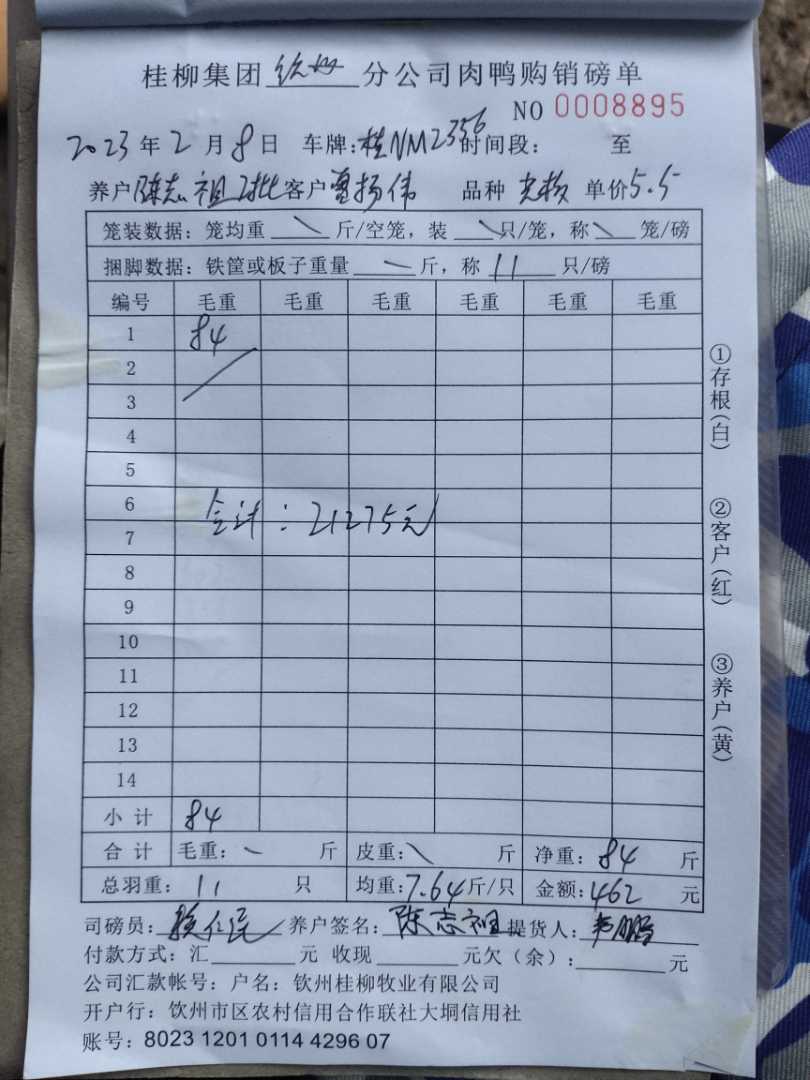 桂柳集团 钦州 分公司肉鸭购销磅单
NO 0008895
2023年2月8日 车牌:桂NM2356 时间段: 至
养户陈志祖2批 客户曾扬伟 品种 单价5.5
笼装数据: 笼均重 \ 斤/空笼, 装 \ 只/笼, 称 \ 笼/磅
捆脚数据: 铁筐或板子重量 — 斤, 称 11 只/磅
编号 毛重 毛重 毛重 毛重 毛重 毛重
1 84
2
3
4
5
6
合计: 21275元
7
8
9
10
11
12
13
14
小 计 84
合 计 毛重: - 斤 皮重: \ 斤 净重: 84 斤
总羽重: 11 只 均重:7.64斤/只 金额:462 元
司磅员: 养户签名: 陈志祖 提货人:
付款方式: 汇 元 收现 元欠(余): 元
公司汇款帐号: 户名: 钦州桂柳牧业有限公司
开户行: 钦州市区农村信用合作联社大垌信用社
账号: 8023 1201 0114 4296 07
①存根(白)
②客户(红)
③养户(黄)